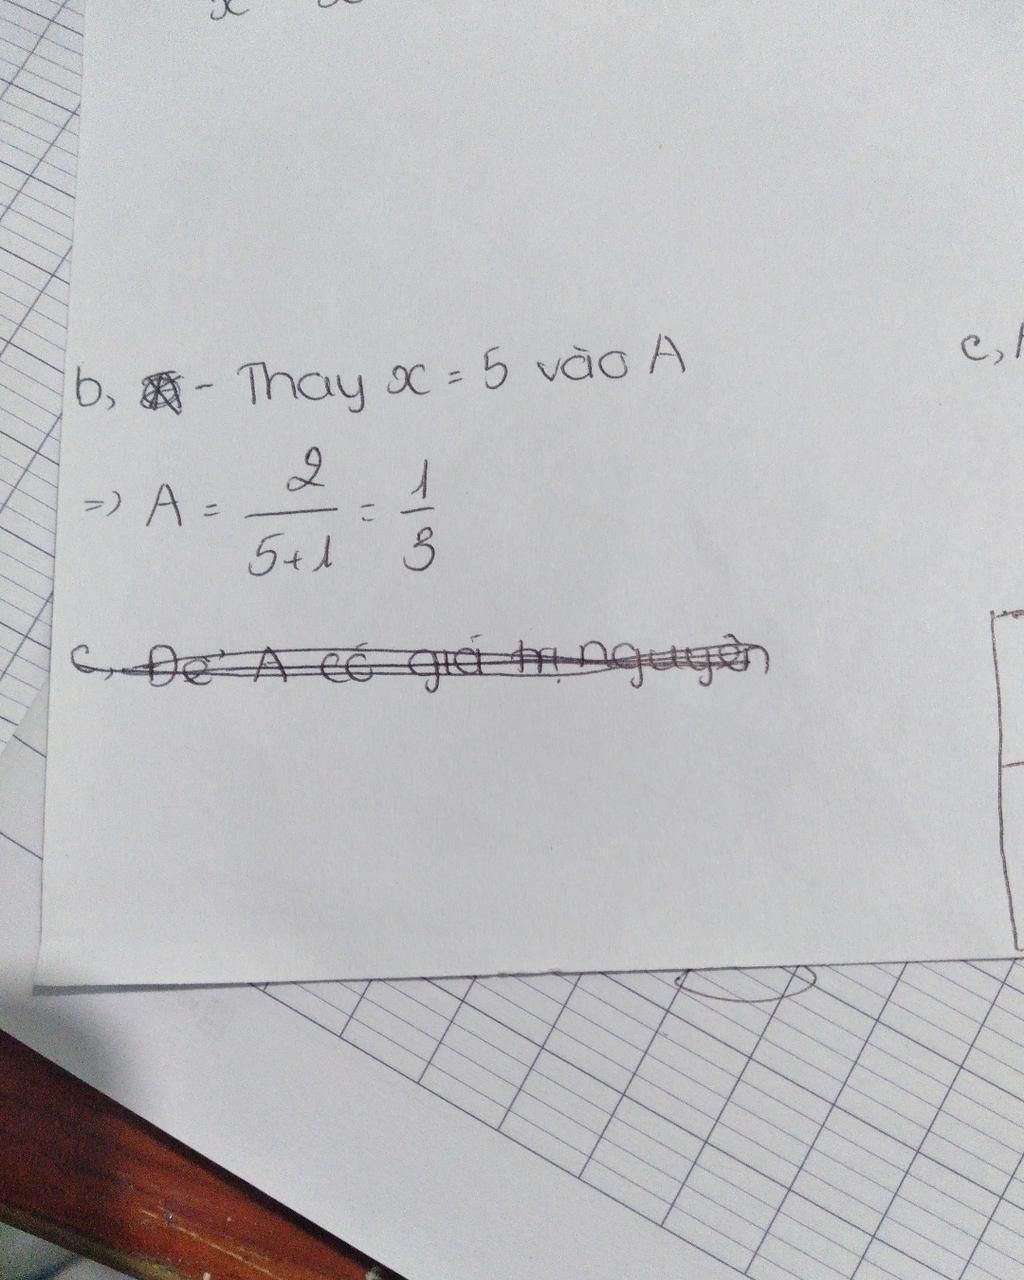 x
b, - Thay x = 5 vào A
c,
=> A = 2/(5+1) = 1/3
c, Để A có giá trị nguyên